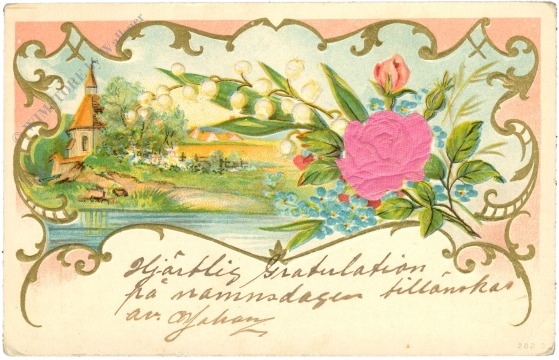 Hjärtlig Gratulation
på namnsdagen tillönskas
av
282